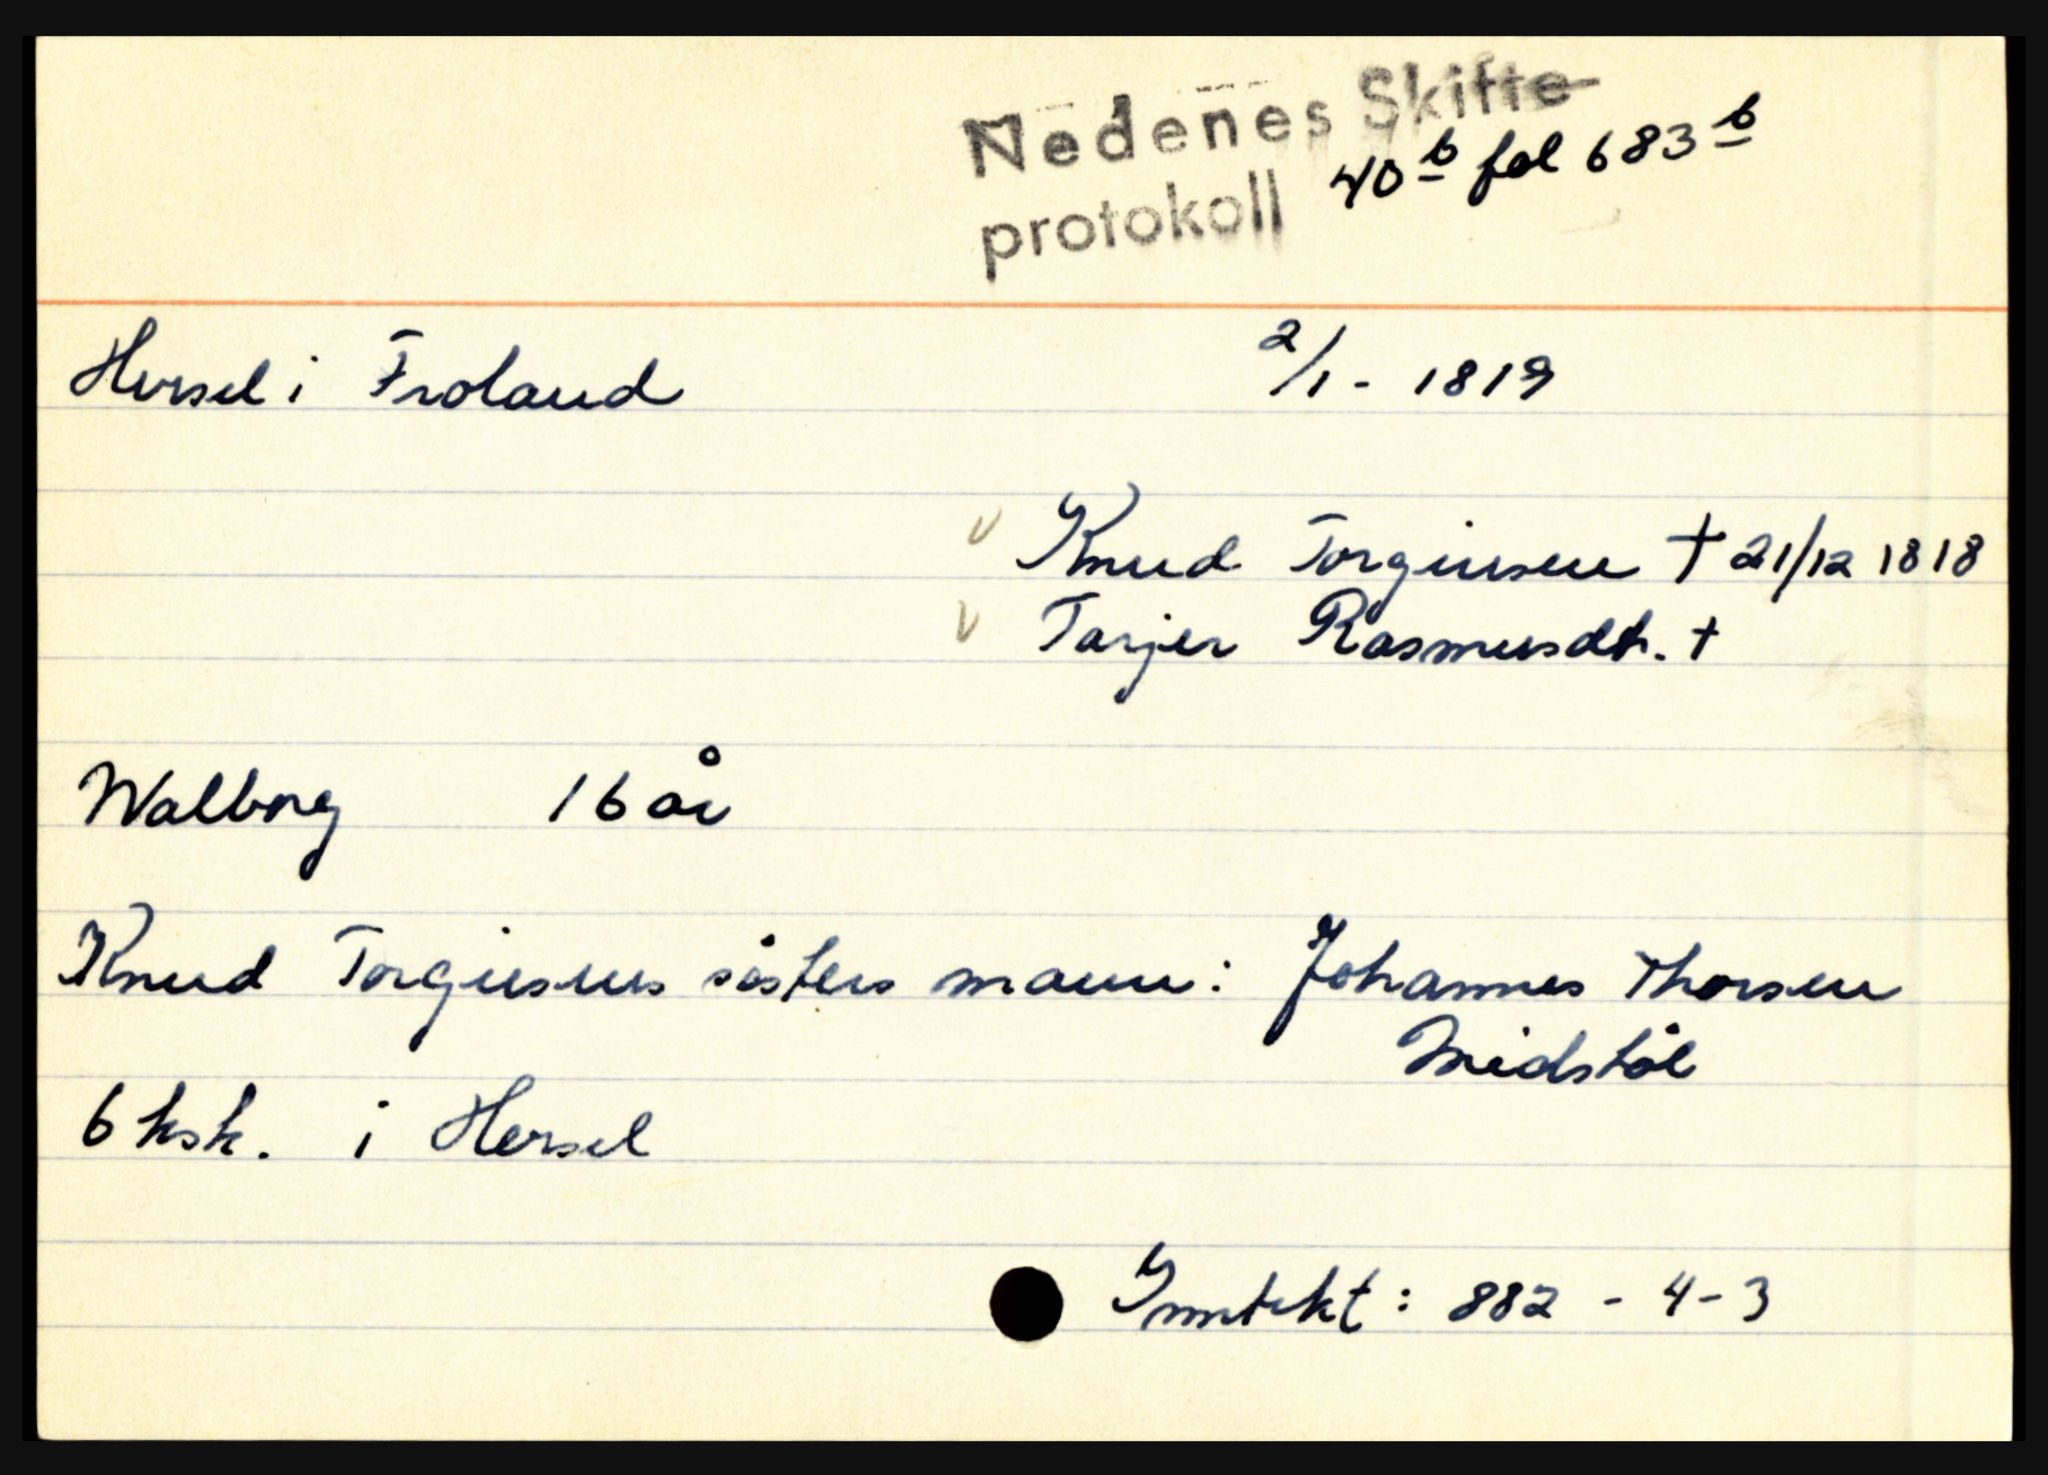 Nedenes Skifte-
protokoll 40b fol 683b
Hersel i Froland 2/1 - 1819
v Knud Torgiusen † 21/12 1818
v Tarjer Rasmusdtr. †
Walborg 16 år
Knud Torgiusens søsters mann: Johannes Thorsen
Midstøl
6 hsk. i Hersel
Inntekt: 882 - 4 - 3